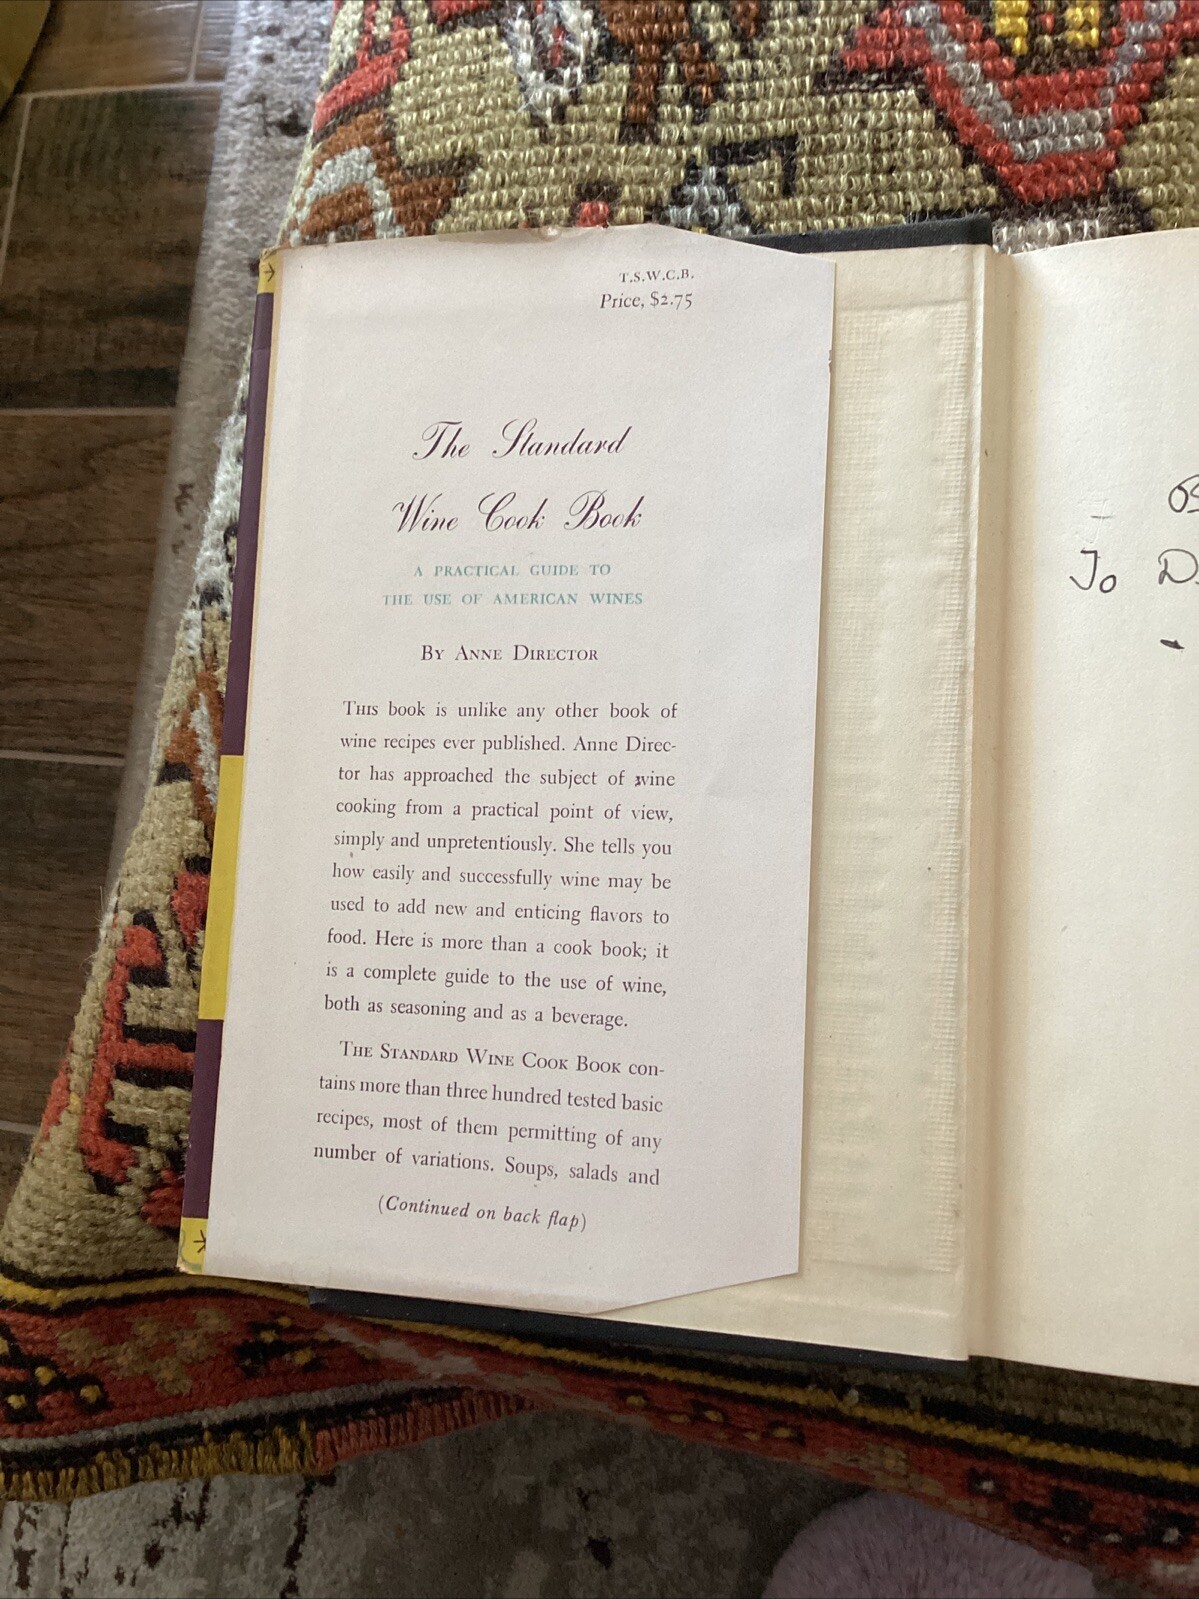 T.S.W.C.B.
Price, $2.75
The Standard
Wine Cook Book
A PRACTICAL GUIDE TO
THE USE OF AMERICAN WINES
BY ANNE DIRECTOR
THIS book is unlike any other book of
wine recipes ever published. Anne Direc-
tor has approached the subject of wine
cooking from a practical point of view,
simply and unpretentiously. She tells you
how easily and successfully wine may be
used to add new and enticing flavors to
food. Here is more than a cook book; it
is a complete guide to the use of wine,
both as seasoning and as a beverage.
THE STANDARD WINE COOK BOOK con-
tains more than three hundred tested basic
recipes, most of them permitting of any
number of variations. Soups, salads and
(Continued on back flap)
To D